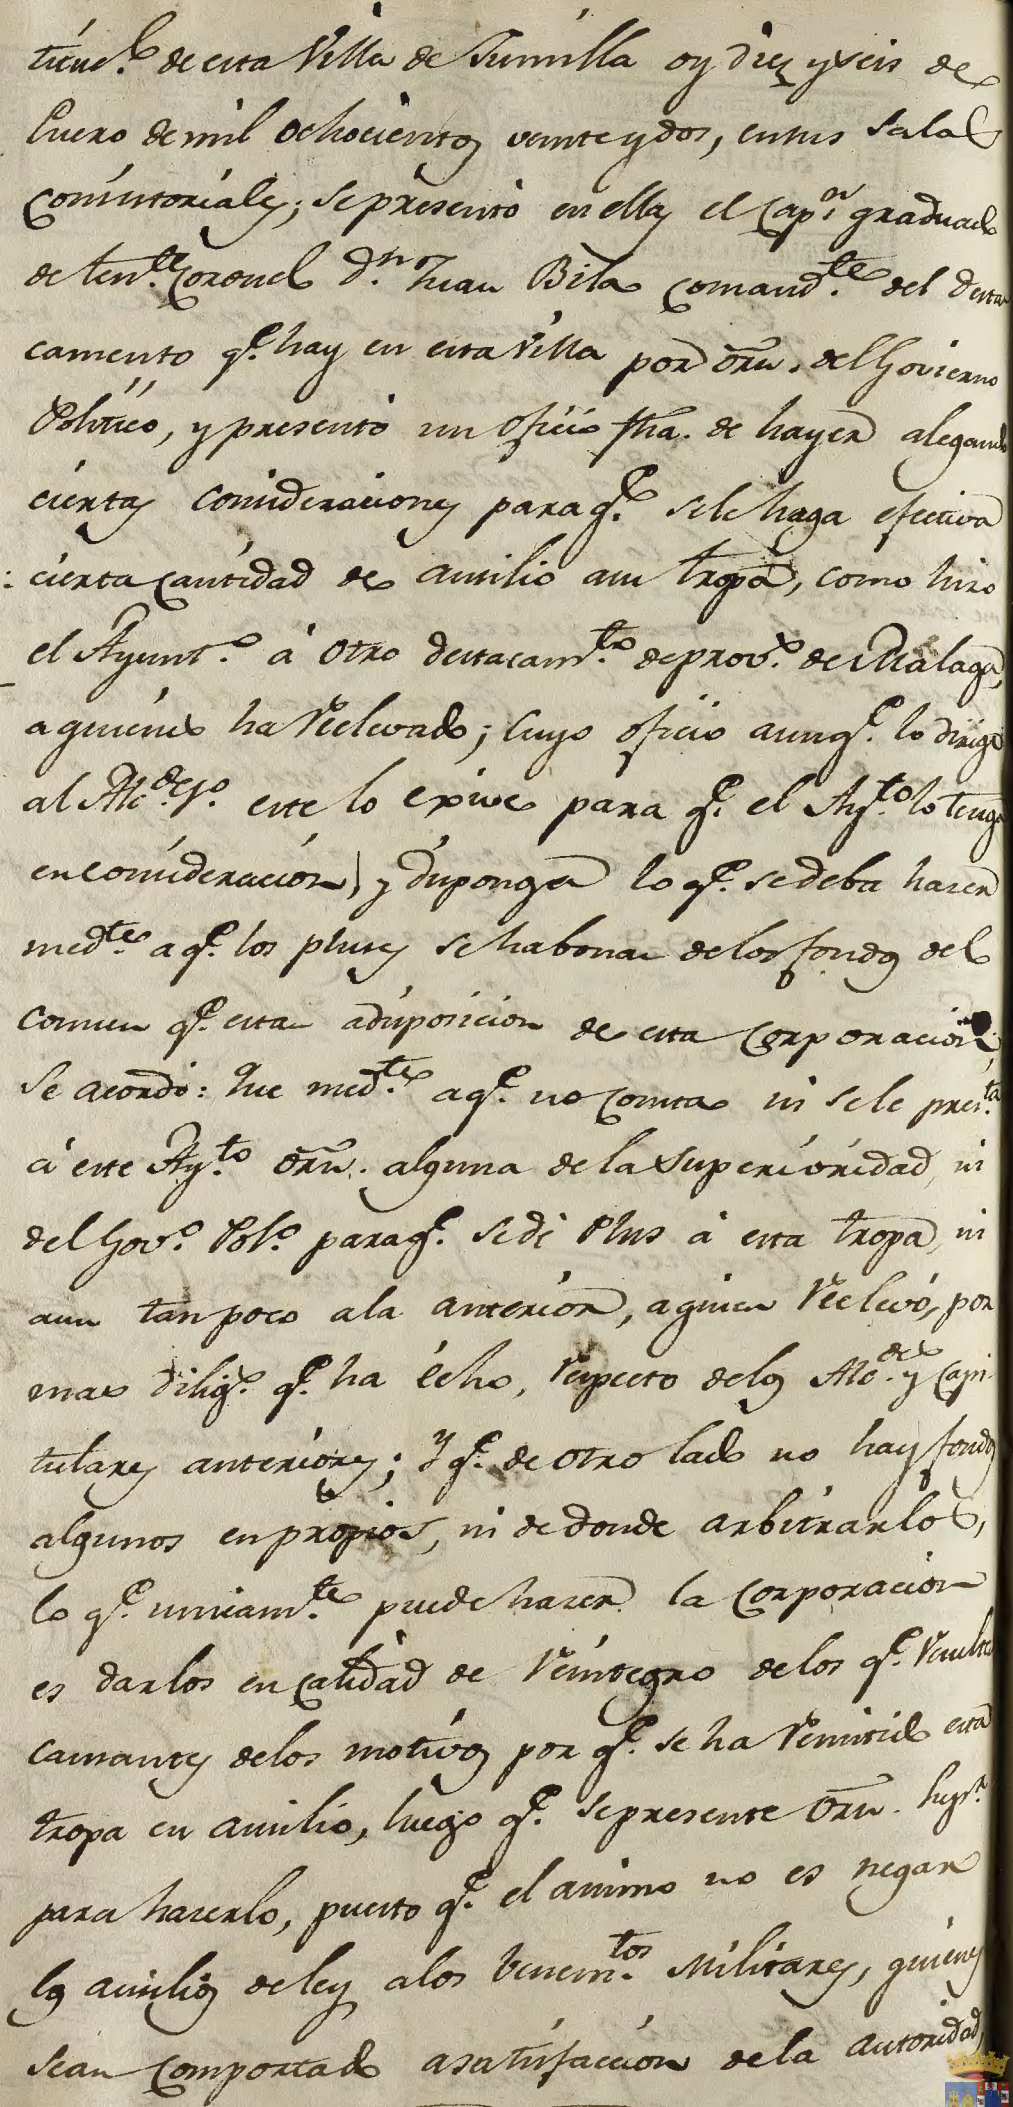 titucl. de esta Villa de Jumilla oy diez y seis de
Enero de mil ochocientos veinte y dos, en sus salas
Consistoriales; se presentó en ellas el Capn. graduado
de tente. Coronel Dn. Juan Bila comandte. del desta
camento qe. hay en esta Villa por orn. del Govierno
Político, y presentó un oficio fha. de hayer alegando
ciertas consideraciones para qe. se le haga efectiva
cierta cantidad de ausilio a su tropa, como hizo
el Ayunto. á otro destacamto. de provo. de Malaga,
a quienes ha Relevado; cuyo oficio aunqe. lo dirige
al Alcde. 1o. este lo exive para qe. el Ayto. lo tenga
en consideración, y disponga lo qe. se deba hacer
medte. a qe. los pluses se habonan de los fondos del
comun qe. estan a disposicion de esta corporación,
Se acordó: Que medte. a qe. no consta ni se le presta.
á este Ayto. orn. alguna de la superióridad, ni
del Govo. Polo. para qe. se dé Plus á esta tropa, ni
aun tanpoco a la anterior, a quien Relevó, por
mas diligs. qe. ha écho, Respecto de los Alcdes. y Capi
tulares anteriores; Y qe. de otro lado no hay fondos
algunos en propios, ni de donde arbitrarlos,
lo qe. unicamte. puede hacer la corporacion
es darlos en calidad de Reintegro de los qe. Resulten
causantes de los motivos por qe. se ha Remitido esta
tropa en ausilio, luego qe. se presente orn. supr.
para hacerlo, puesto qe. el animo no es negar
los ausilios de ley a los benemtos. Militares, quienes
sean comportado a satisfacción de la autoridad,